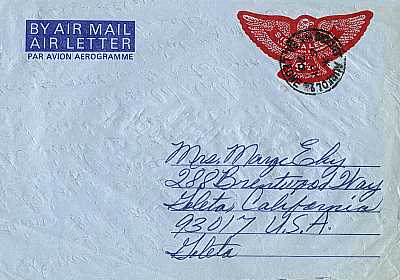 BY AIR MAIL
AIR LETTER
PAR AVION AEROGRAMME
Mrs. Marge Eky
288 Brentwood Way
Goleta California
93017 U.S.A.
Goleta